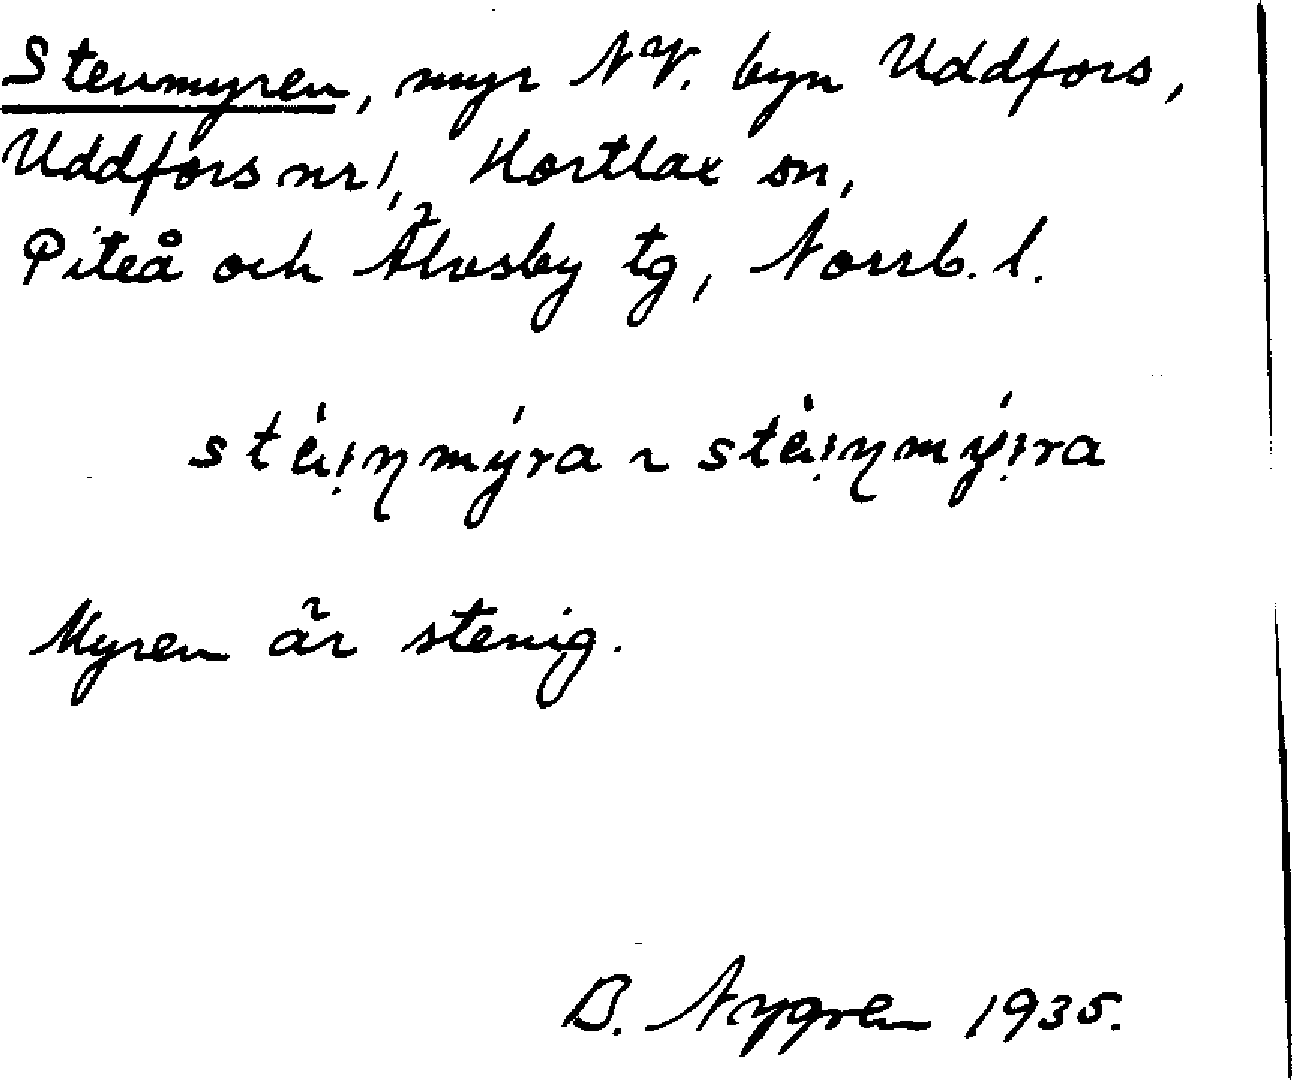 Stenmyren, myr NV. byn Uddfors,
Uddfors nr 1, Hortlax sn,
Piteå och Älvsby tg, Norrb. l.
Myren är stenig.
B. Nygren 1935.